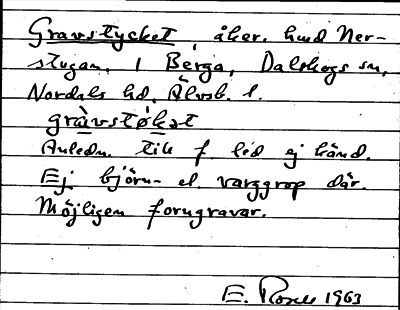 Gravstycket, åker, hmd Ner-
stugan, 1 Berga, Dalskogs sn,
Nordals hd, Älvsb. l.
gràvstøkət
Anledn. till f. led ej känd.
Ej björn- el. varggrop där.
Möjligen forngravar.
E. 1963